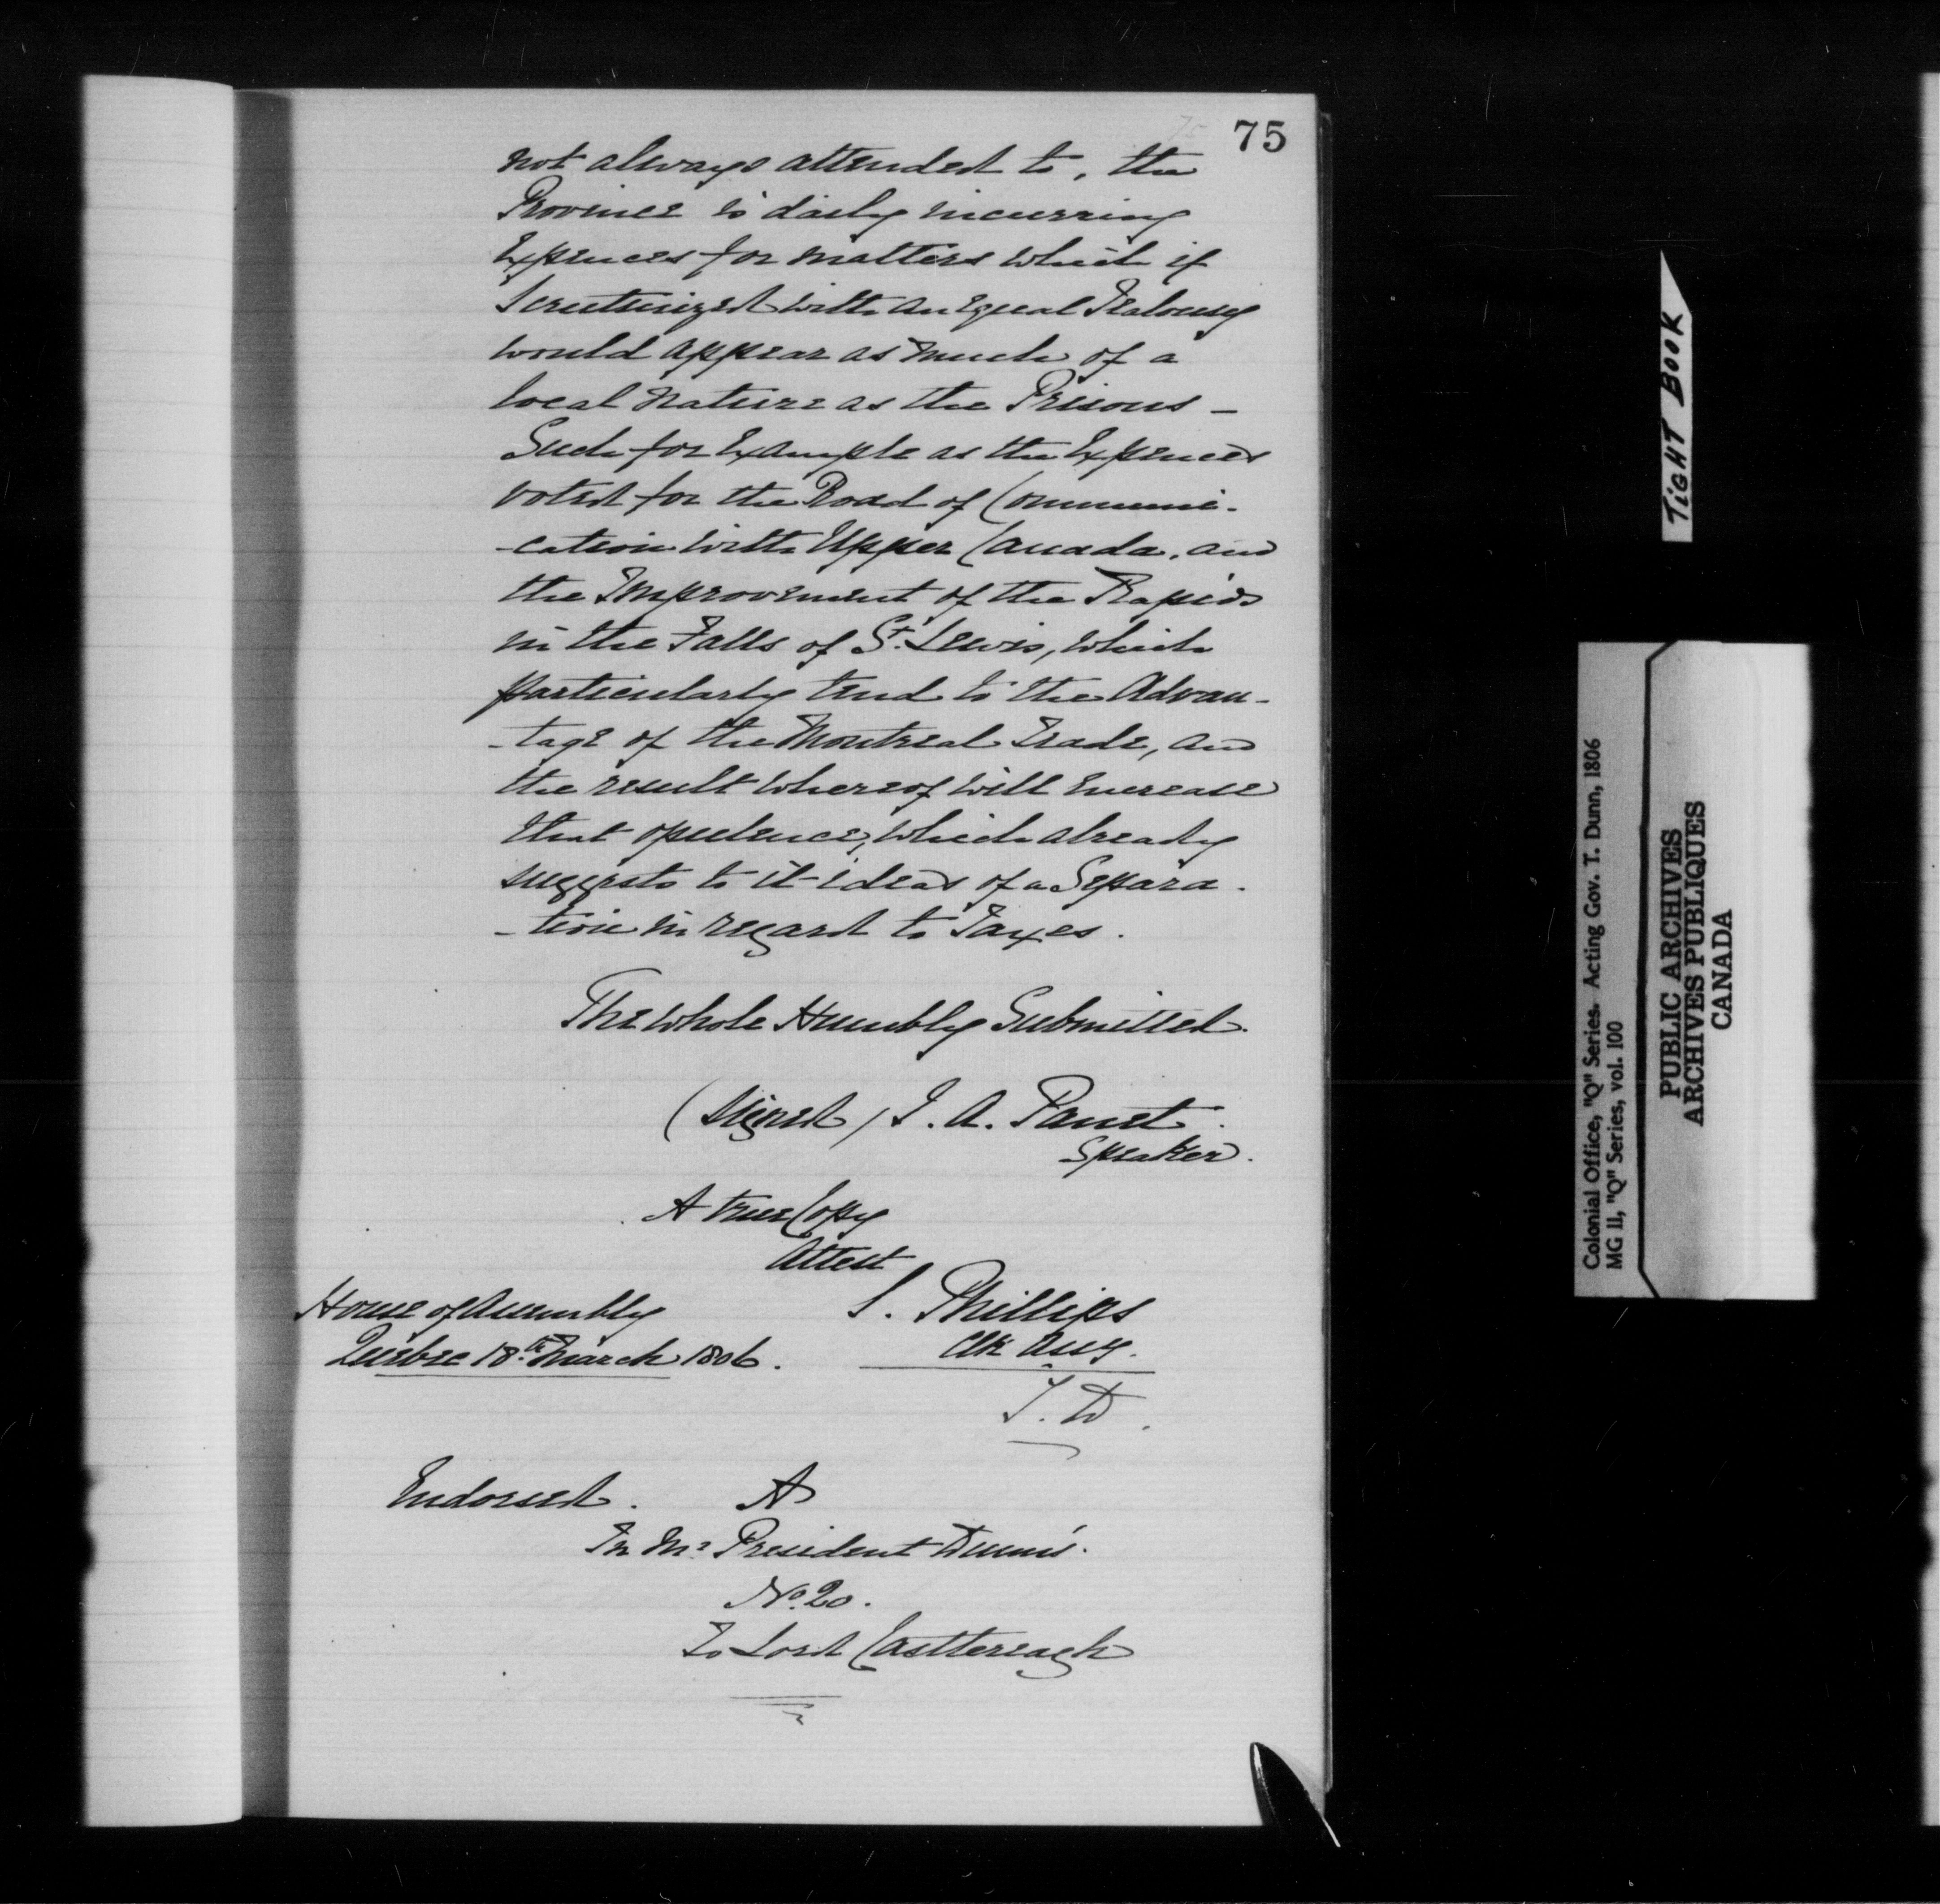 75
not always attended to, the
Province is daily incurring
Expences for matters which if
Scrutinized with an equal Jealousy
would appear as much of a
local Nature as the Prisons -
Such for Example as the Expences
voted for the Road of Communi-
-cation with Upper Canada, and
the Improvement of the Rapids
in the Falls of St. Lewis, which
particularly tend to the Advan-
-tage of the Montreal Trade, and
the result whereof will increase
that opulence, which already
suggests to it ideas of a Separa-
-tion in regard to Taxes.
The whole Humbly Submitted.
(Signed) J. A. Panet.
Speaker.
A true Copy
Attest
House of Assembly
Quebec 18th March 1806.
S. Phillips
Clk Assy.
T. D.
Endorsed. A
In Mr President Dunn's.
No. 20.
To Lord Castlereagh
TIGHT BOOK
Colonial Office, "Q" Series. Acting Gov. T. Dunn, 1806
MG 11, "Q" Series, vol. 100
PUBLIC ARCHIVES
ARCHIVES PUBLIQUES
CANADA